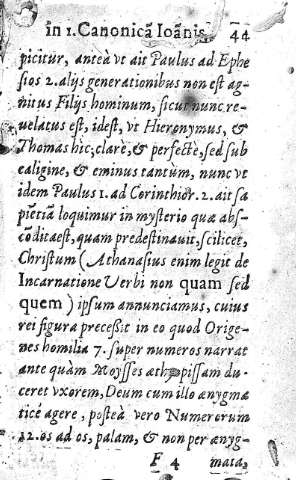 in 1. Canonicã Ioãnis, 44
picitur, anteà vt ait Paulus ad Ephe
sios 2. alijs generationibus non est ag-
nitus Filijs hominum, sicut nunc re-
uelatus est, idest, vt Hieronymus, &
Thomas hic; clarè, & perfectè, sed sub
caligine, & eminus tantùm, nunc vt
idem Paulus 1. ad Corinthior. 2. ait sa
piẽtiã loquimur in mysterio quæ abs-
cõdita est, quam predestinauit, scilicet,
Christum (Athanasius enim legit de
Incarnatione Verbi non quam sed
quem) ipsum annunciamus, cuius
rei figura precessit in eo quod Orige-
nes homilia 7. super numeros narrat
ante quam Moysses æthypissam du-
ceret vxorem, Deum cum illo ænygma
ticé agere, posteà vero Numerorum
12. os ad os, palam, & non per ænyg-
F 4 mata,